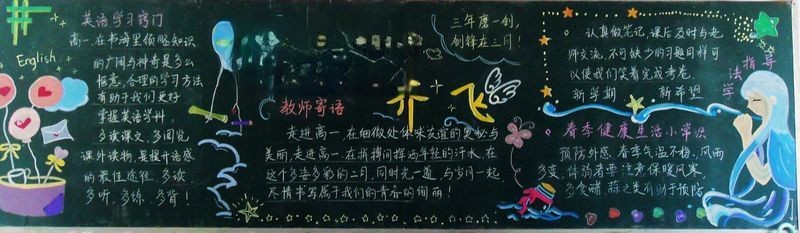 英语学习窍门
English
高一,在书海里领略知识
的广阔与神奇是多么
惬意,合理的学习方法
有助于我们更好
掌握英语学科,
多读课文,多阅览
课外读物,是提升语感
的最佳途径。多读、
多听、多练、多背!
三年磨一剑,
剑锋在三月!
齐飞
教师寄语
走进高一,在细微处体味友谊的奥秘与
美丽,走进高一,在拼搏间挥洒年轻的汗水,在
这个多姿多彩的二月,同时光一道,与岁月一起,
尽情书写属于我们的青春的绚丽!
认真做笔记,课后及时与老
师交流,不可缺少的习题同样可
以使我们笑着完成考卷。
新学期 新希望
学法指导
春季健康生活小学识
预防外感,春季气温不稳,风雨
多变,体弱者要注意保暖风寒,
多食醋、蒜之类有助于预防